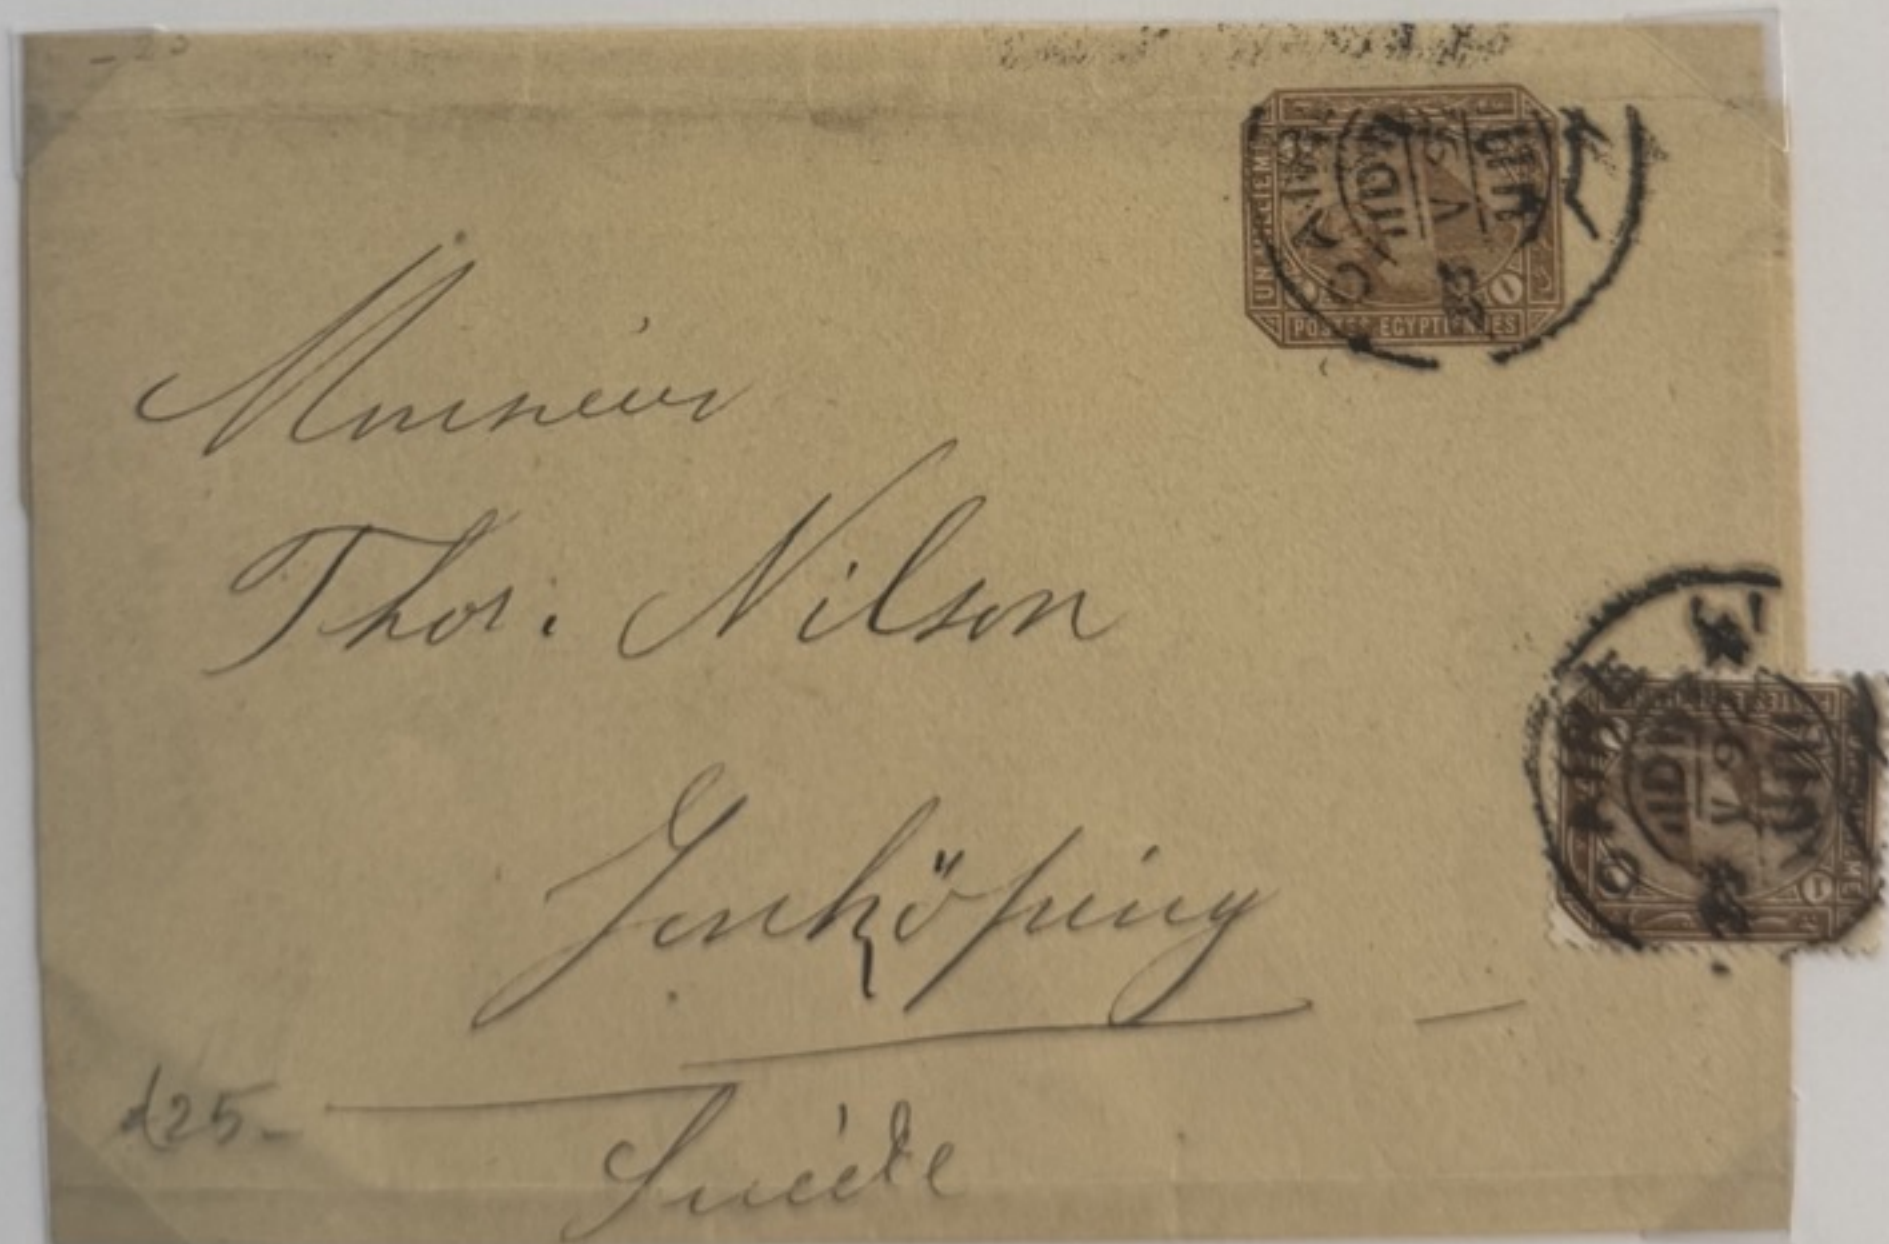 UN MILLIEME
POSTES EGYPTIENNES
CAIRE
Monsieur
Thor. Nilson
Jenköping
Suède
25-
CAIRE
1